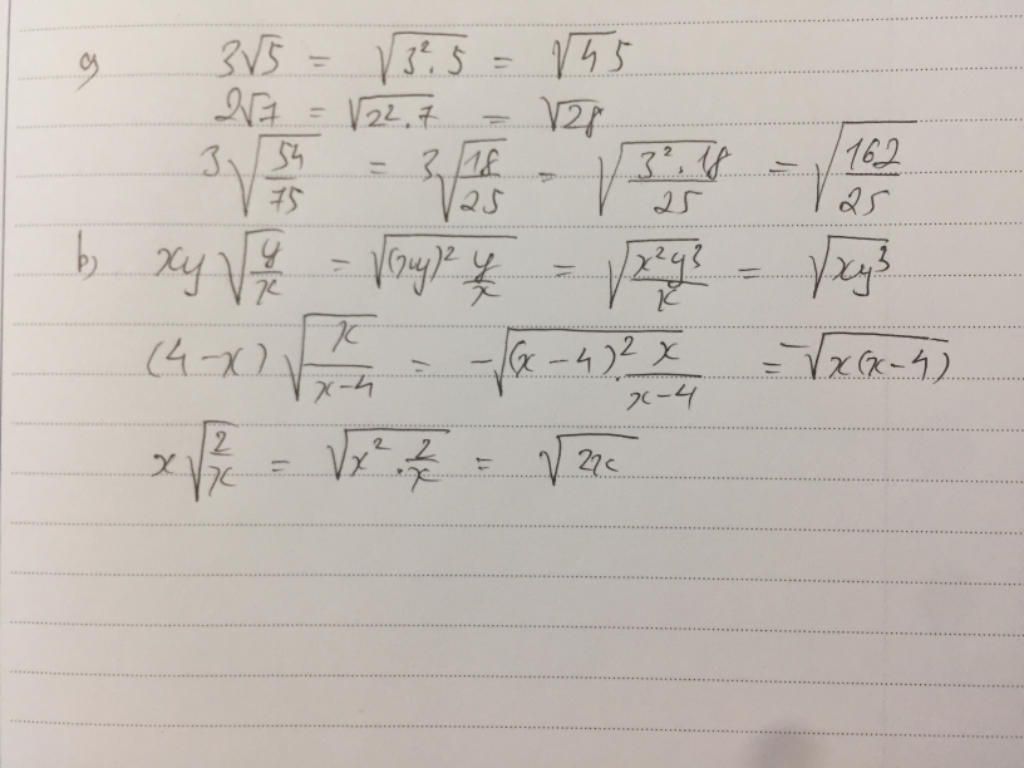 a) 3√5 = √(3².5) = √45
2√7 = √(2².7) = √28
3√(54/75) = 3√(18/25) = √(3².18/25) = √(162/25)
b) xy√(y/x) = √((xy)² y/x) = √(x²y³/x) = √(xy³)
(4-x)√(x/(x-4)) = -√((x-4)².x/(x-4)) = -√(x(x-4))
x√(2/x) = √(x².2/x) = √(2x)